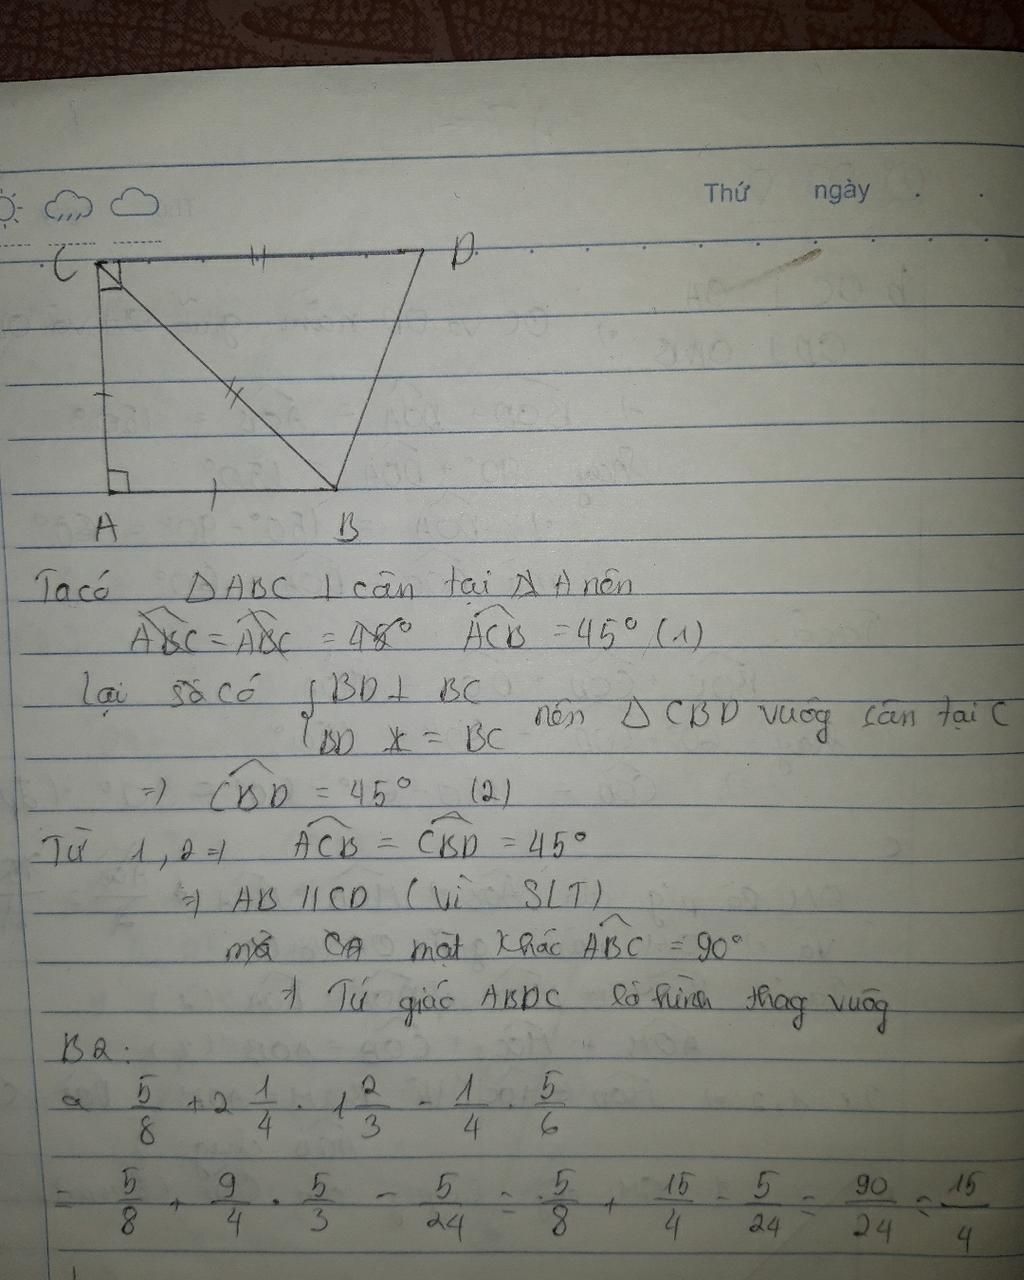 Thứ ngày . .
C D
A B
Ta có ΔABC ⊥ cân tại Δ A nên
ABC = ABC = 45° ACB = 45° (1)
lại có { BD ⊥ BC
BD = BC nên Δ CBD vuôg cân tại C
=> CBD = 45° (2)
Từ 1, 2 => ACB = CBD = 45°
=> AB // CD (vì SLT)
mặt khác ABC = 90°
=> Tứ giác ABDC là hình thag vuôg
B2:
a 5/8 + 2 1/4 . 1 2/3 - 1/4 . 5/6
= 5/8 + 9/4 . 5/3 - 5/24 = 5/8 + 15/4 - 5/24 = 90/24 = 15/4